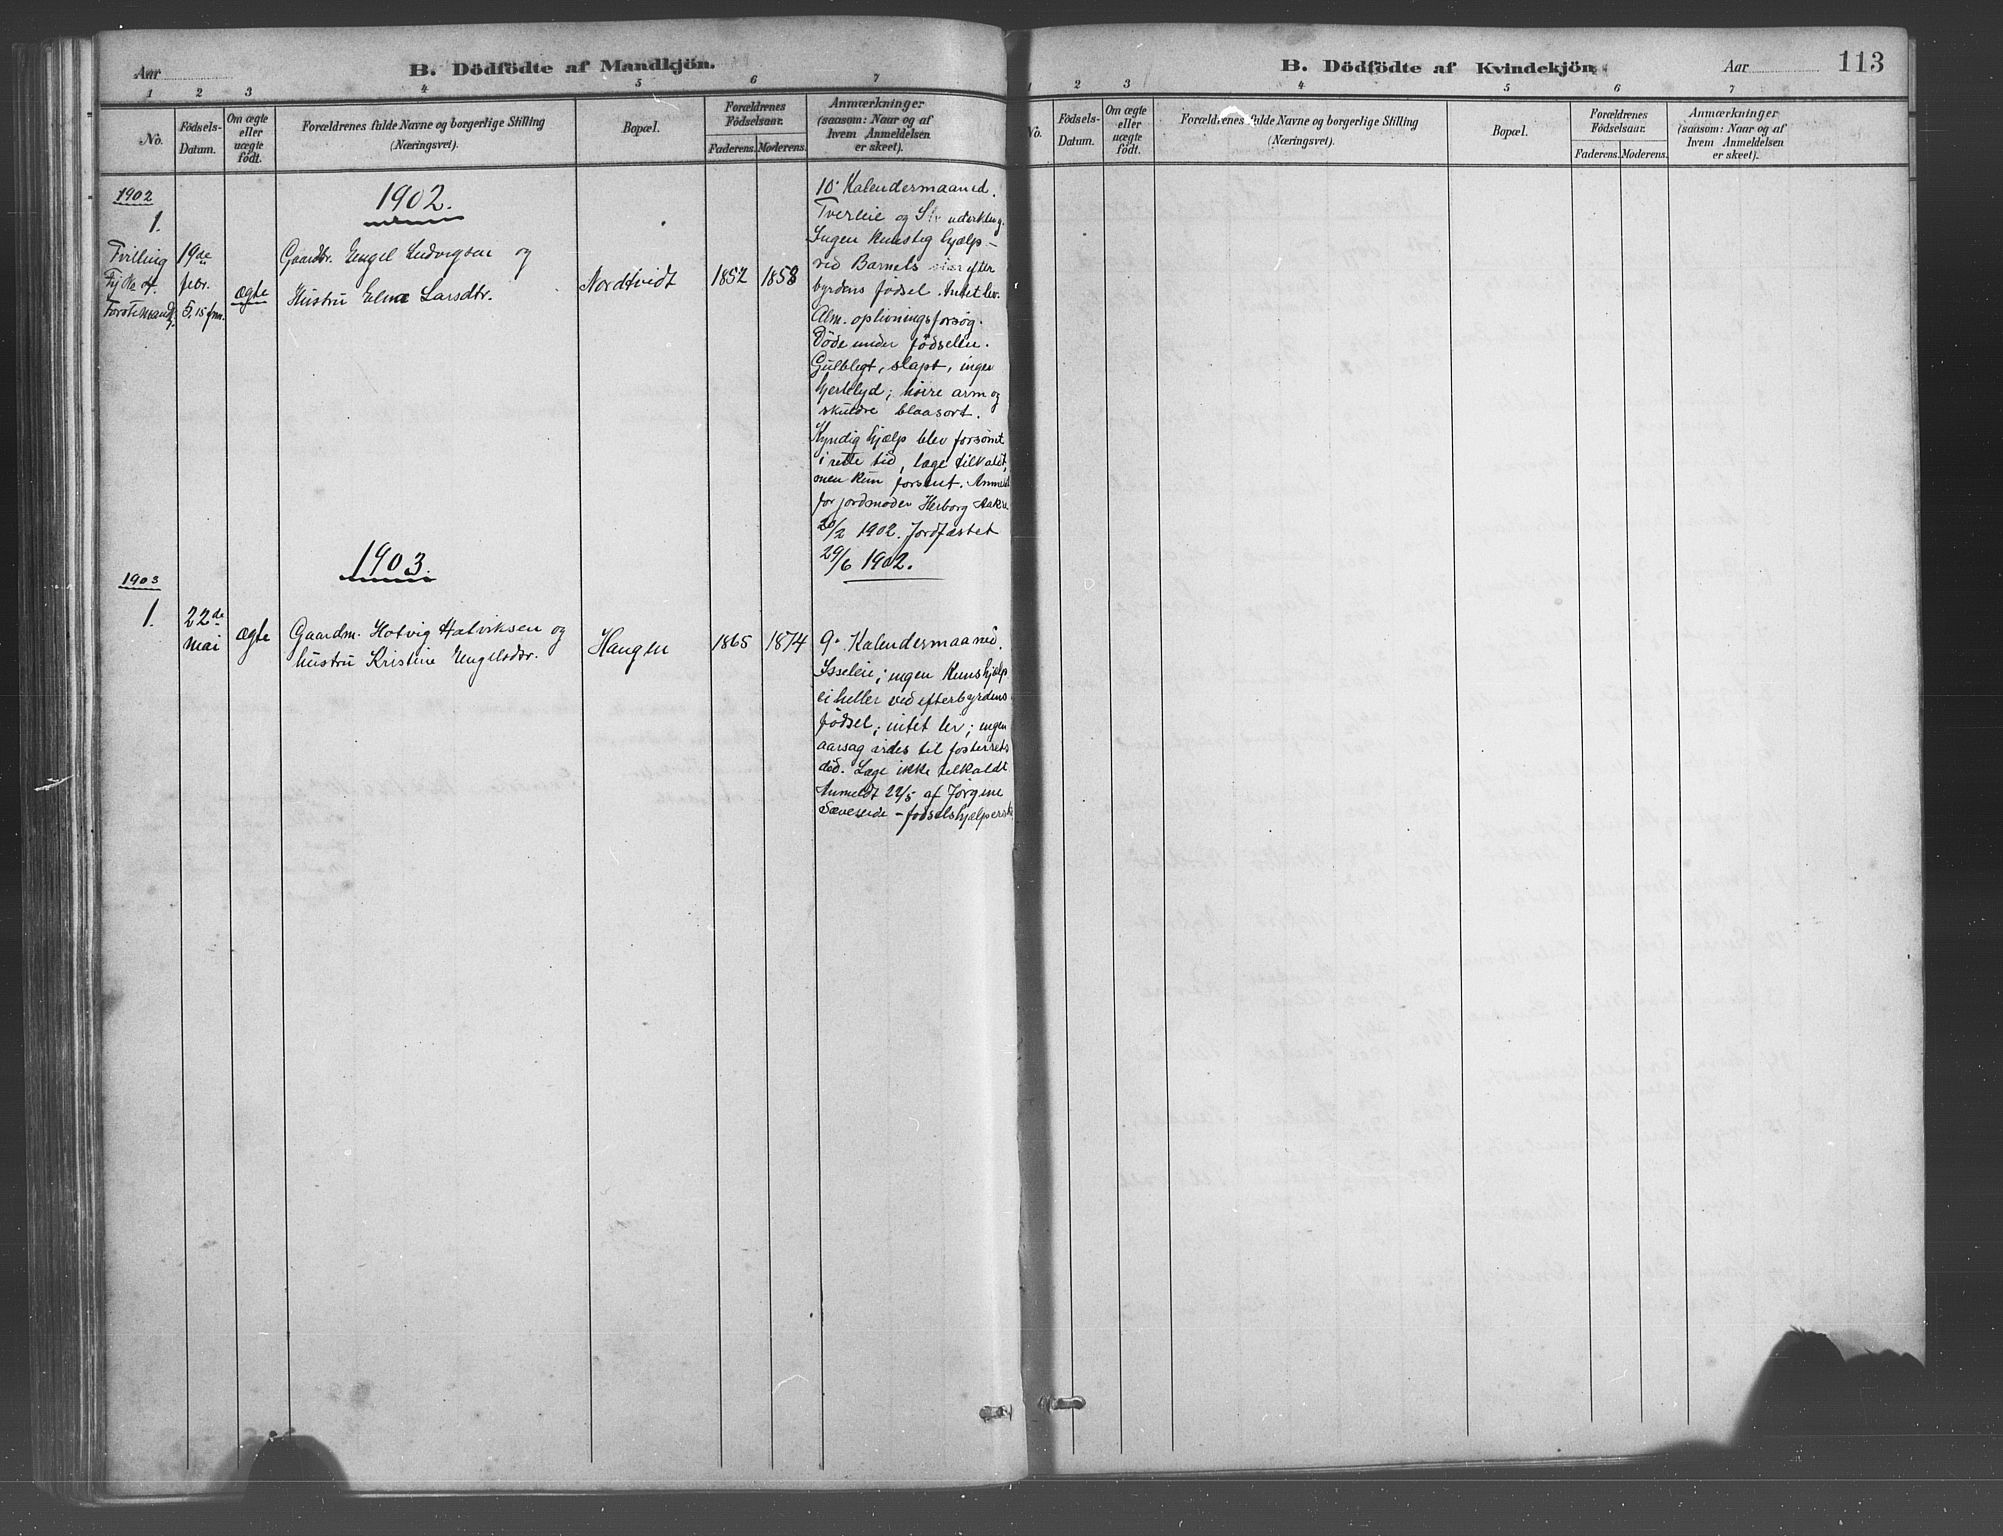 Aar
B. Dödfödte af Mandkjön.
1 2 3 4 5 6 7
No.
Födsels-
Datum.
Om ægte
eller
uægte
födt.
Forældrenes fulde Navne og borgerlige Stilling
(Næringsvei).
Bopæl.
Forældrenes
Födselsaar.
Faderens.
Moderens.
Anmærkninger
(saasom: Naar og af
hvem Anmeldelsen
er skeet).
1902
1.
Tvilling
19de
febr.
5.15 fm.
ægte
1902.
Gaardbr. Engel Ludvigsen og
Hustru Larsdtr.
Nordtvidt
1852
1858
10. Kalendermaaned.
Tverleie og
Ingen Kunstig hjælp
ved Barnets efter
byrdens fødsel. Intet liv.
Alm. oplivningsforsøg.
Døde under fødselen.
Gulblegt, slapt, ingen
hjertelyd; høire arm og
skuldre blaasort.
Kyndig hjælp blev forsømt
i rette tid, læge tilkaldt,
men kun forsent. Anmeldt
for jordmoder Herborg Aakre
20/2 1902. Jordfæstet
29/6 1902.
1903
1.
22de
mai
ægte
1903.
Gaardm. Hotvig Halviksen og
hustru Kristine Engelsdtr.
Haugen
1865
1874
9. Kalendermaaned.
Isseleie; ingen Kunshjælp
ei heller ved efterbyrdens
fødsel; intet liv; ingen
aarsag vides til fosterets
død. Læge ikke tilkaldt.
Anmeldt 22/5 af Jørgine
Sæveseide - fødselshjælperske
B. Dödfödte af Kvindekjön.
Aar
113
1 2 3 4 5 6 7
No.
Födsels-
Datum.
Om ægte
eller
uægte
födt.
Forældrenes fulde Navne og borgerlige Stilling
(Næringsvei).
Bopæl.
Forældrenes
Födselsaar.
Faderens.
Moderens.
Anmærkninger
(saasom: Naar og af
hvem Anmeldelsen
er skeet).